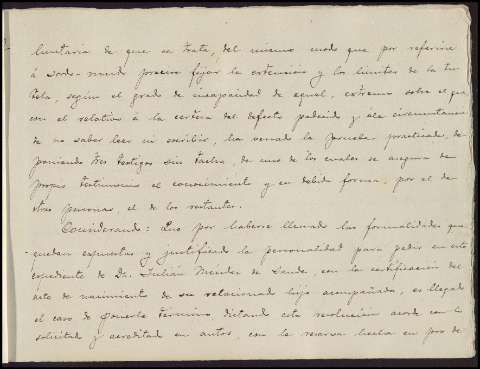 luntaria de que se trata, del mismo modo que por referirse
á sordo-mudo precisa fijar la extensión y los límites de la tu-
tela, según el grado de incapacidad de aquel, extremo sobre el que
con el relativo a la certeza del defecto padecido y a la circunstancia
de no saber leer ni escribir, ha versado la prueba practicada, de-
poniendo tres testigos sin tacha, de uno de los cuales se asegura de
propio testimonio el conocimiento y en debida forma, por el de
otras personas, el de los restantes.
Considerando: Que por haberse llenado las formalidades que
quedan expuestas y justificado la personalidad para pedir en este
expediente de Dn. Julián Mendez de con la certificación del
acta de nacimiento de su relacionado hijo acompañada, es llegado
el caso de ponerle término, dictando esta resolución acorde con lo
solicitado y acreditado en autos, con la reserva hecha en pro de